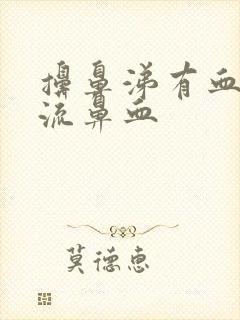 擤鼻涕有血
流鼻血
莫德惠